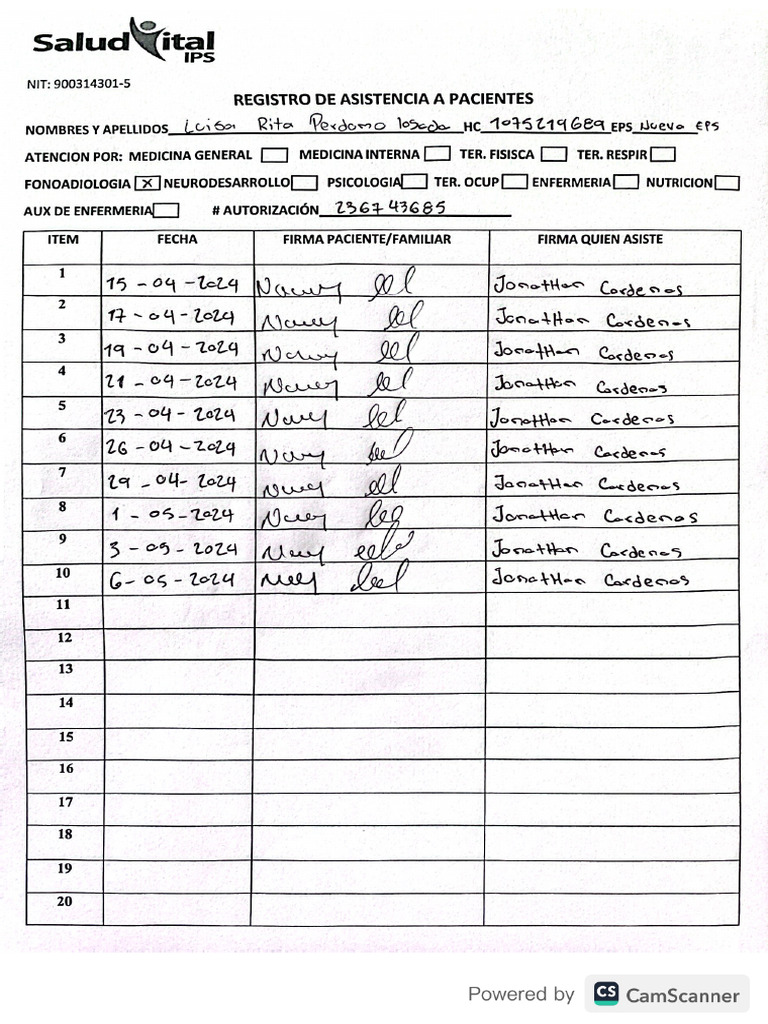 SaludVital
IPS
NIT: 900314301-5
REGISTRO DE ASISTENCIA A PACIENTES
NOMBRES Y APELLIDOS Luisa Rita Perdomo losada HC 1075219689 EPS Nueva EPS
ATENCION POR: MEDICINA GENERAL MEDICINA INTERNA TER. FISISCA TER. RESPIR
FONOADIOLOGIA X NEURODESARROLLO PSICOLOGIA TER. OCUP ENFERMERIA NUTRICION
AUX DE ENFERMERIA # AUTORIZACIÓN 236743685
ITEM FECHA FIRMA PACIENTE/FAMILIAR FIRMA QUIEN ASISTE
1 15-04-2024 JonatHan Cardenas
2 17-04-2024 JonatHan Cardenas
3 19-04-2024 JonatHan Cardenas
4 21-04-2024 JonatHan Cardenas
5 23-04-2024 JonatHan Cardenas
6 26-04-2024 JonatHan Cardenas
7 29-04-2024 JonatHan Cardenas
8 1-05-2024 JonatHan Cardenas
9 3-05-2024 JonatHan Cardenas
10 6-05-2024 JonatHan Cardenas
11
12
13
14
15
16
17
18
19
20
Powered by CS CamScanner